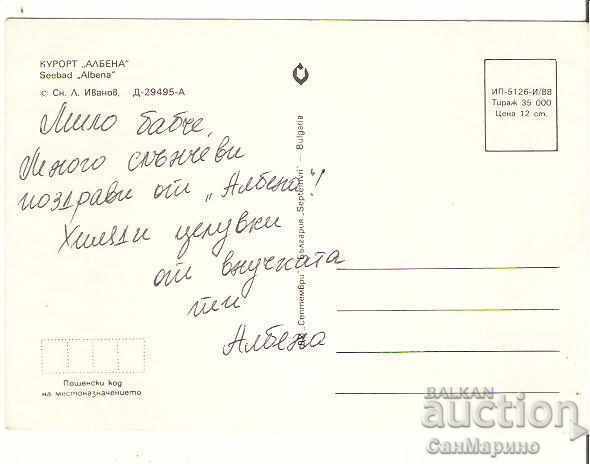 КУРОРТ „АЛБЕНА"
Seebad „Albena"
© Сн. Л. Иванов, Д-29495-А
ИП-5126-И/88
Тираж 35 000
Цена 12 ст.
Мило бабче,
Много слънчеви
поздрави от „Албена"!
Хиляди целувки
от внучката
ти
Албена
„Септември" България „Septemvri" — Bulgaria
Пощенски код
на местоназначението
BALKAN
auction
СанМарино